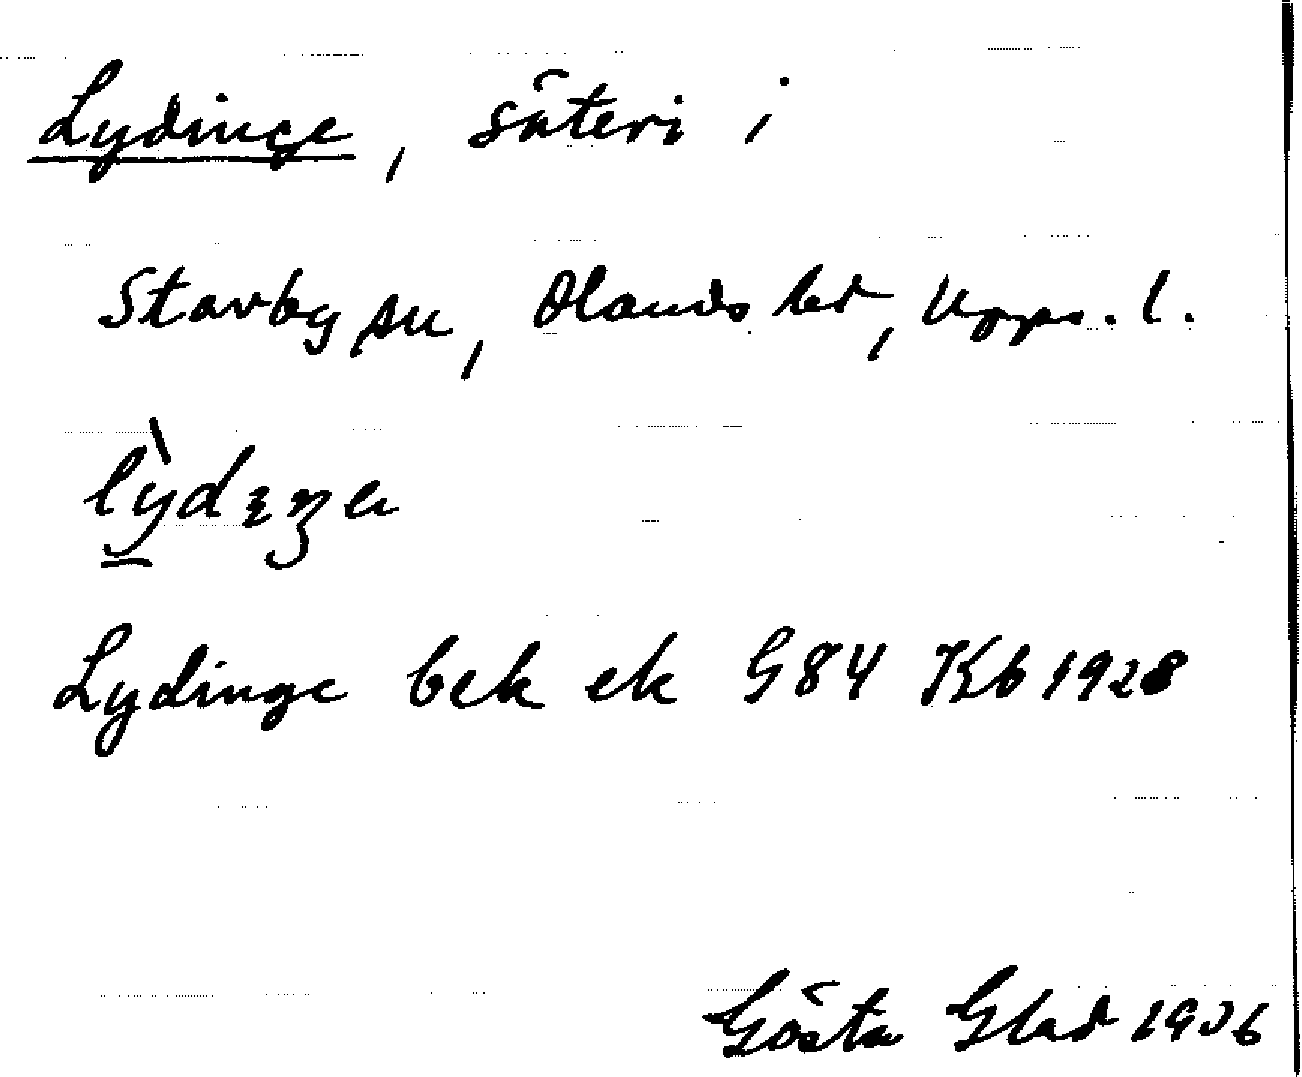 Lydinge, säteri i
Stavby sn, Olands hd, Upps. l.
Lydinge bek ek G84 Kb 1928
Gösta Glad 1936